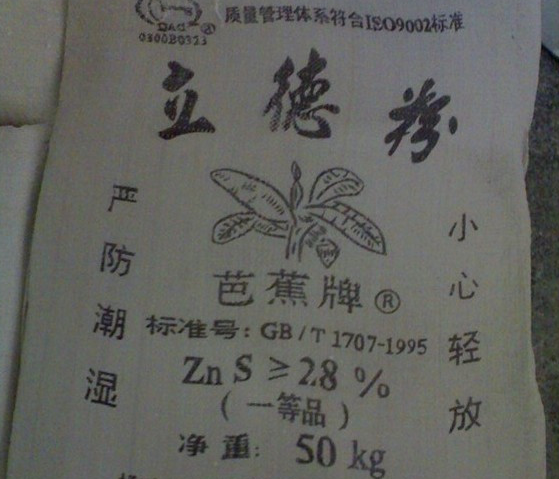 质量管理体系符合ISO9002标准
0300B0323
立德粉
严防潮湿
小心轻放
芭蕉牌®
标准号：GB/T 1707-1995
Zn S ≥ 28 %
(一等品)
净重: 50 kg